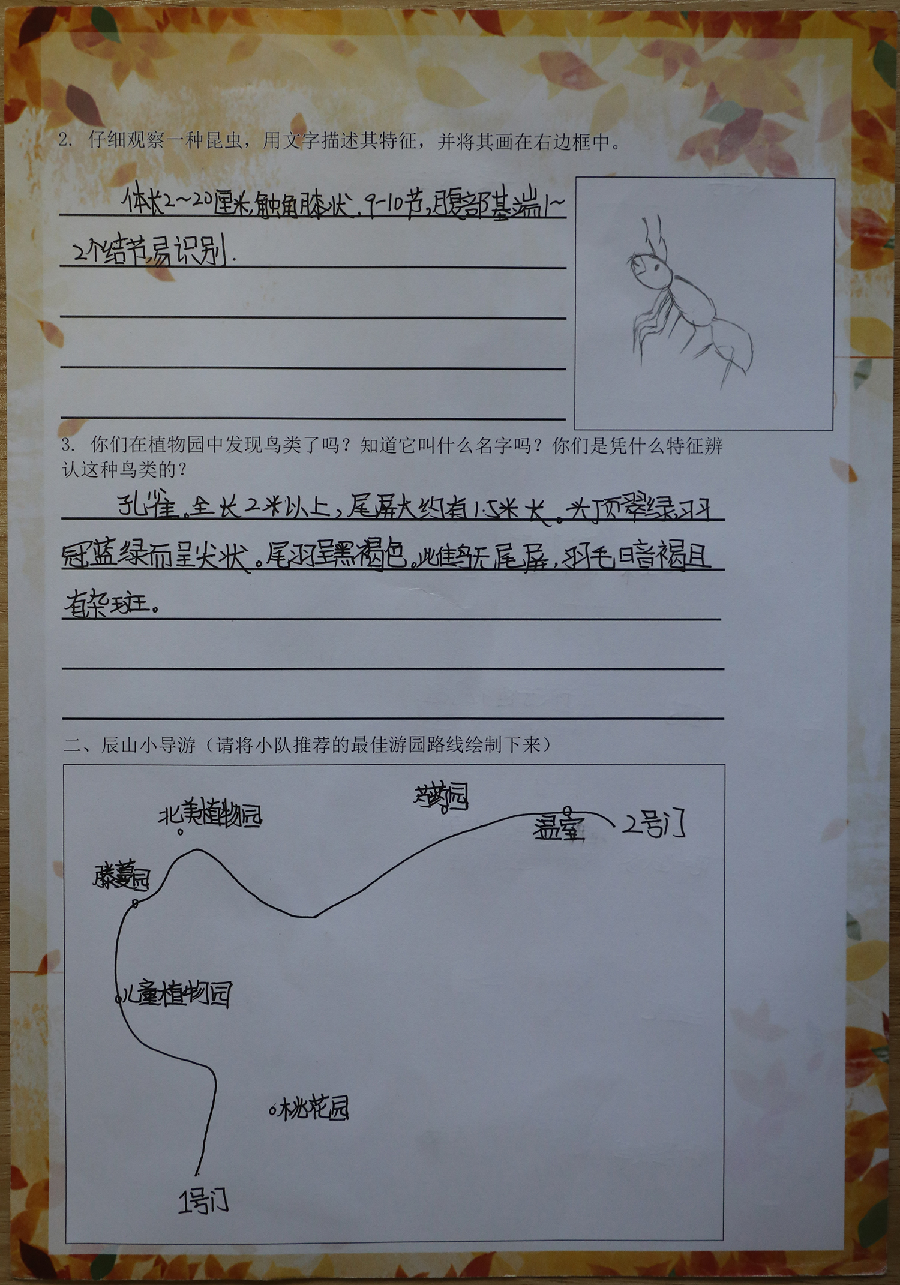 2. 仔细观察一种昆虫，用文字描述其特征，并将其画在右边框中。
体长2~20厘米,触角膝状.9-10节,腹部基端1~
2个结节,易识别.
3. 你们在植物园中发现鸟类了吗？知道它叫什么名字吗？你们是凭什么特征辨
认这种鸟类的？
孔雀。全长2米以上，尾屏大约有1.5米长。头顶翠绿,羽
冠蓝绿而呈尖状。尾羽呈黑褐色。雌鸟无尾屏，羽毛暗褐且
有杂斑。
二、辰山小导游（请将小队推荐的最佳游园路线绘制下来）
芍药园
北美植物园
温室
2号门
藤蔓园
儿童植物园
桃花园
1号门